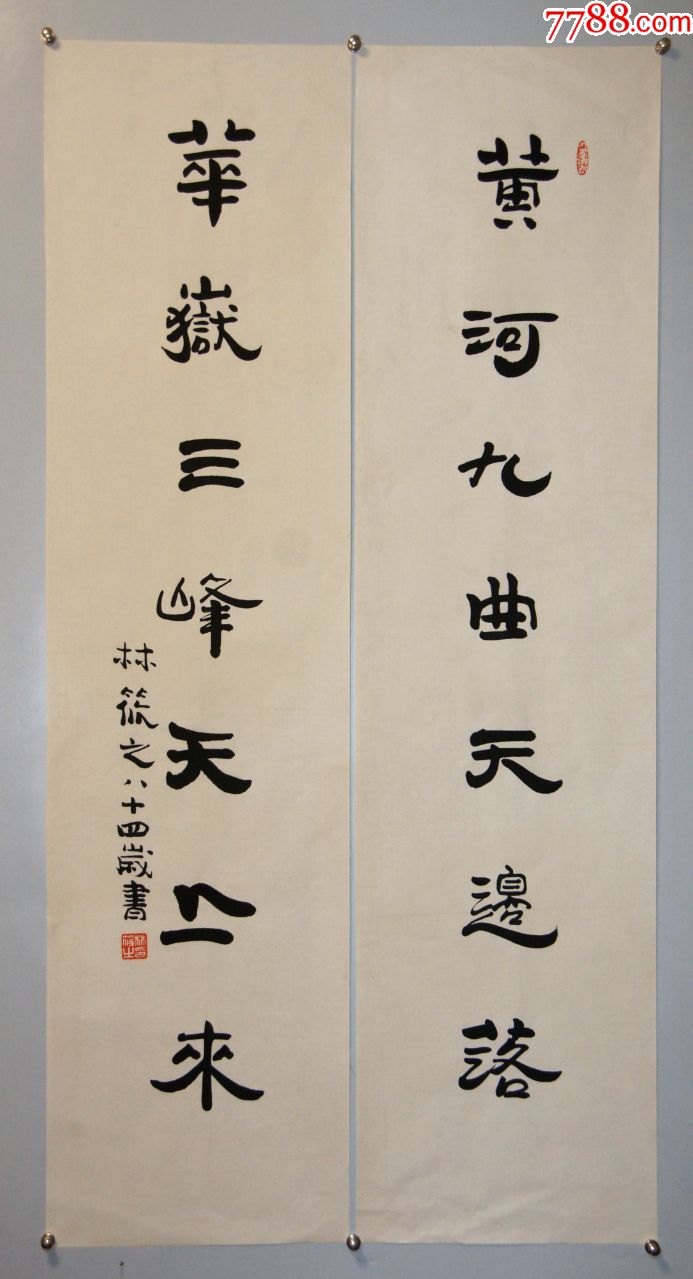 7788.com
黄河九曲天邊落
華嶽三峰天上來
林筱之八十四歲書